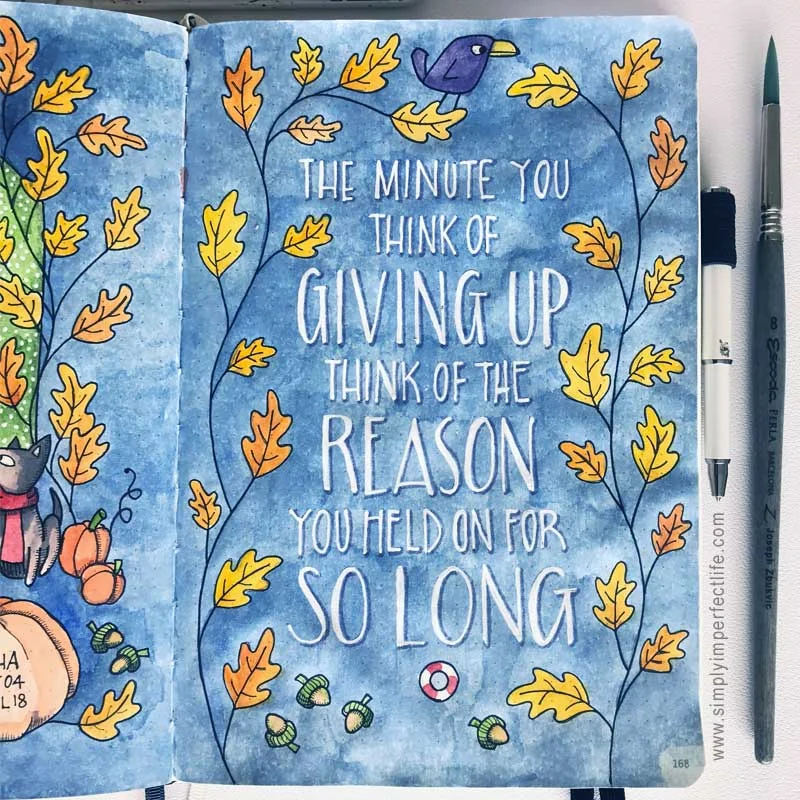 THE MINUTE YOU
THINK OF
GIVING UP
THINK OF THE
REASON
YOU HELD ON FOR
SO LONG
HA
04
L18
168
8 Escoda PERLA BARCELONA Joseph Zbukvic
www.simplyimperfectlife.com